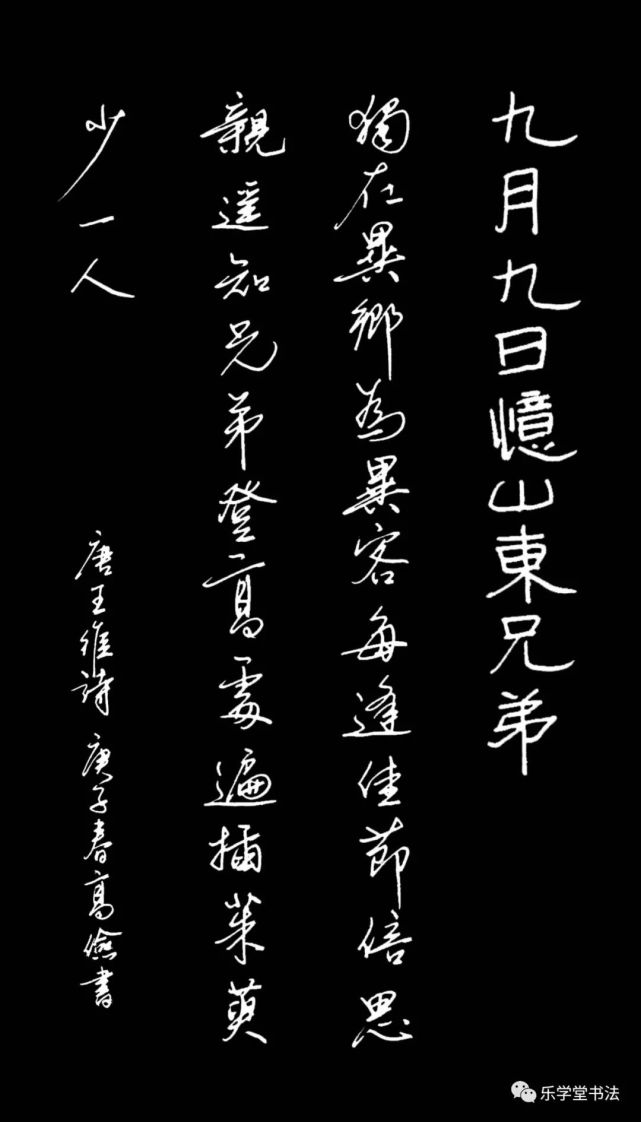 九月九日憶山東兄弟
獨在異鄉為異客每逢佳節倍思
親遥知兄弟登高處遍插茱萸
少一人
唐王維詩庚子春高儉書
乐学堂书法